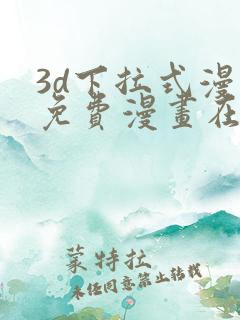 3d下拉式漫
免費漫畫在
蒙特拉
未经同意禁止转载